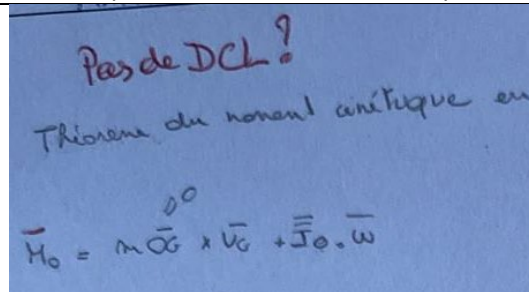 Pas de DCL?
Théoreme du moment cinétique en
→0
H̅₀ = m O̅G̅ × V̅G̅ + J̿₀ . ω̅